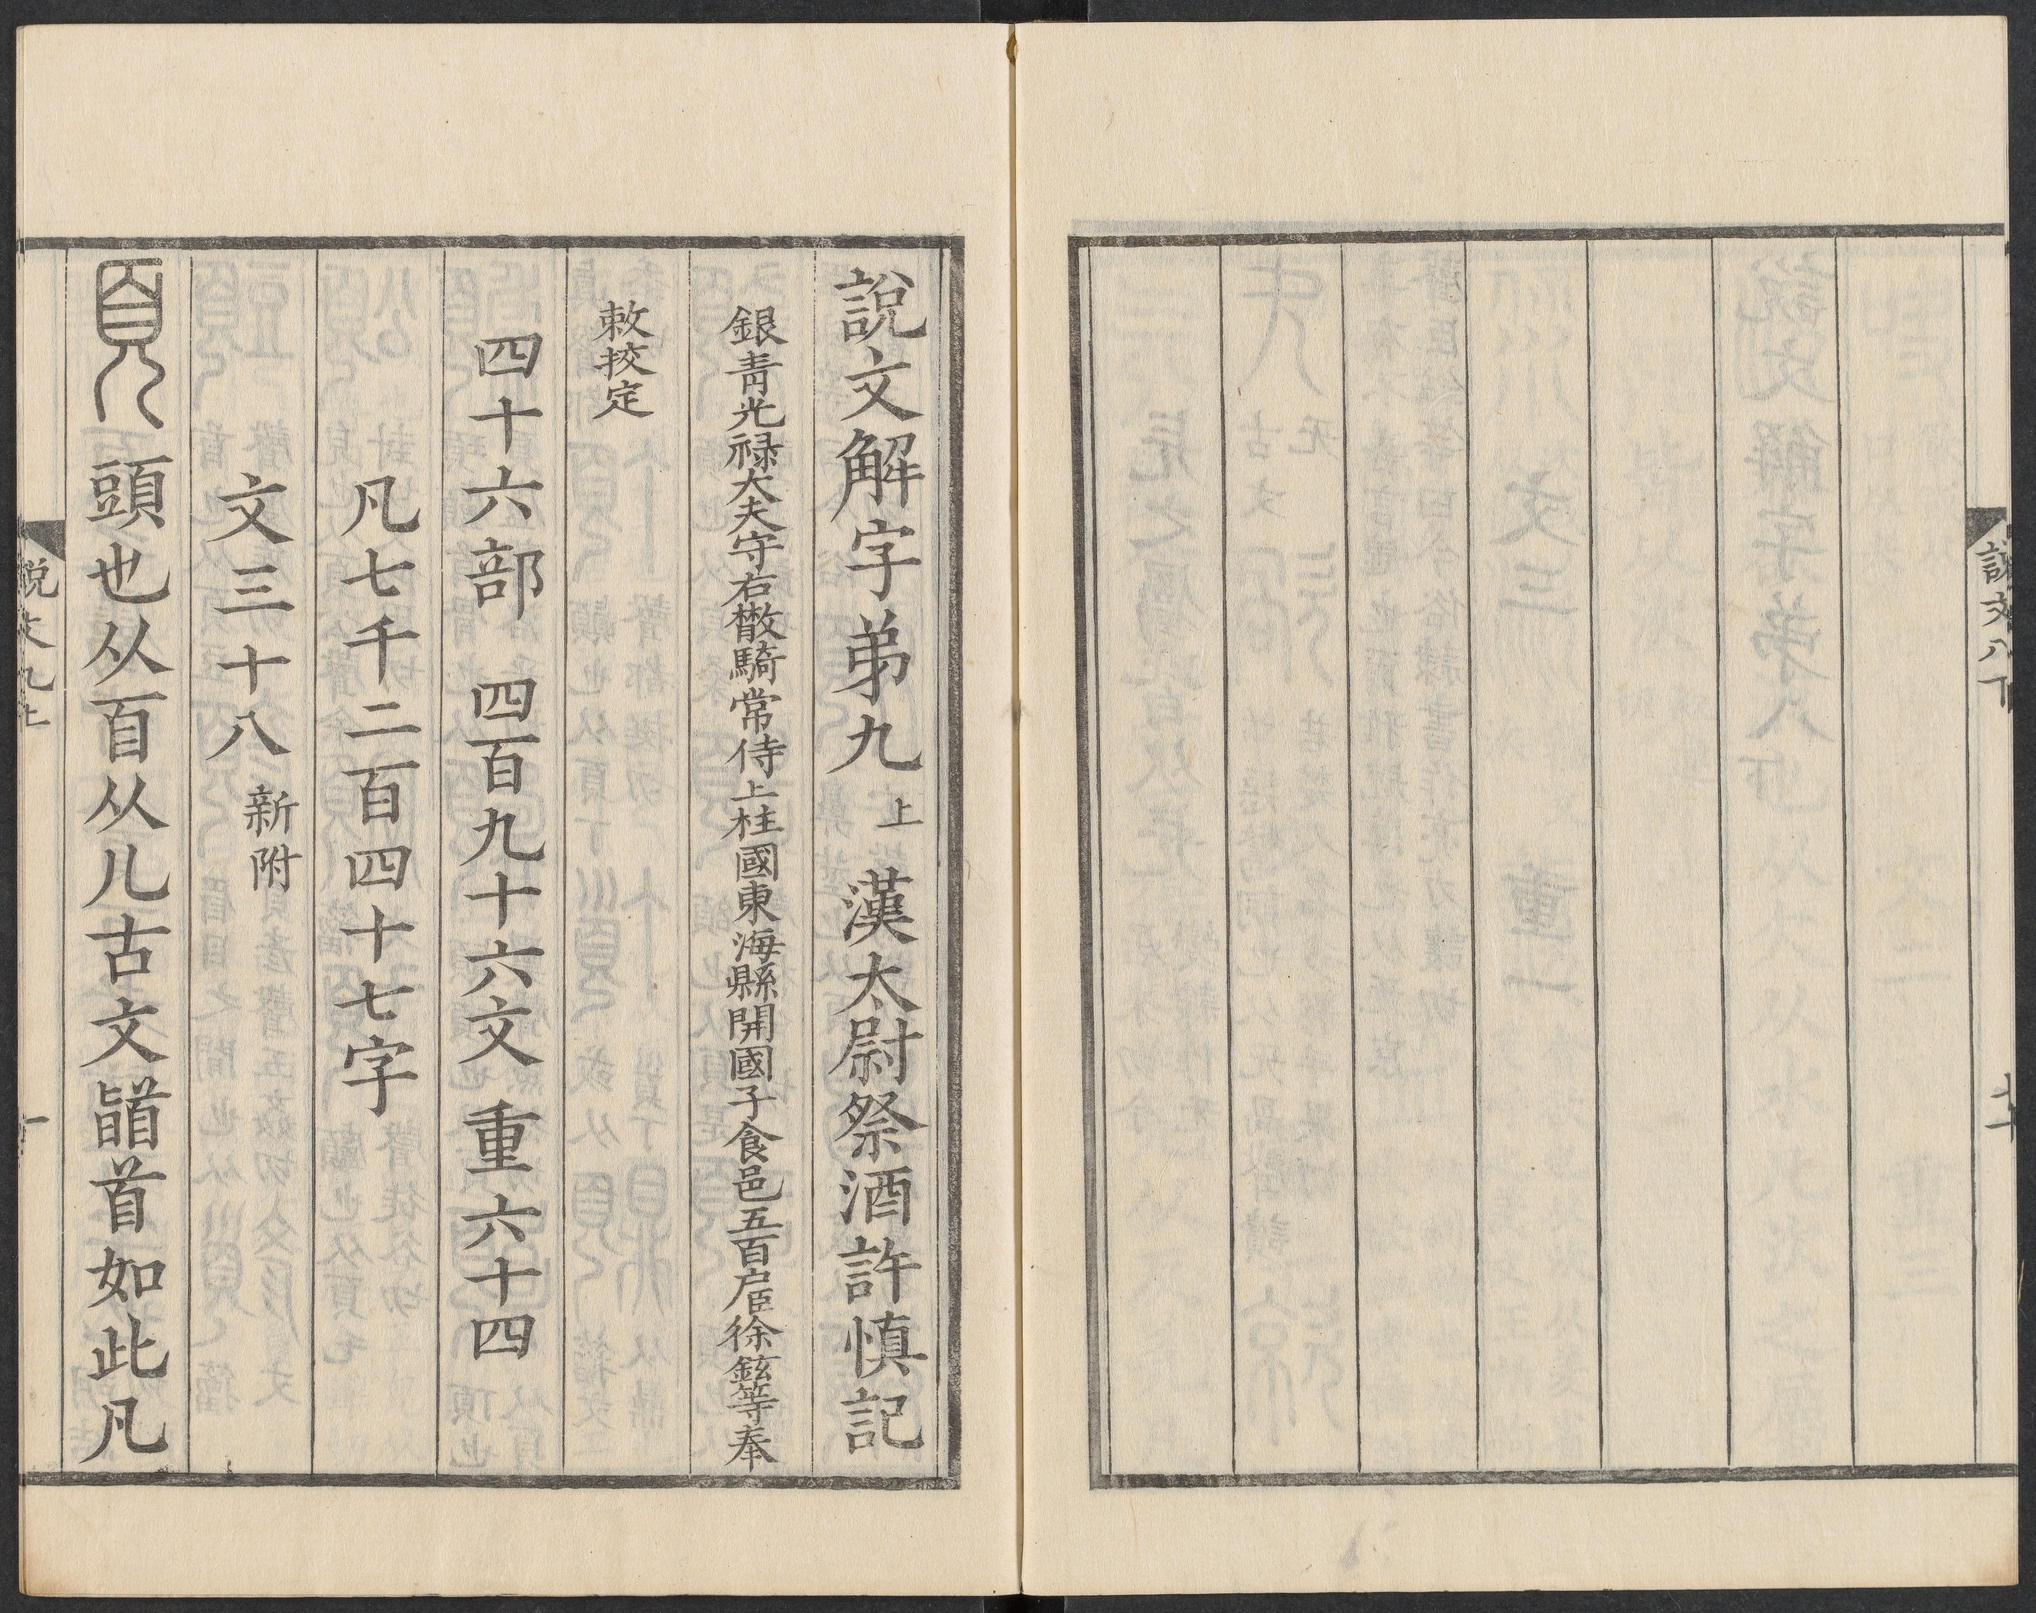 說文八下
十一
說文解字弟九上 漢太尉祭酒許慎記
銀青光祿大夫守右散騎常侍上柱國東海縣開國子食邑五百戶臣徐鉉等奉
敕挍定
四十六部 四百九十六文 重六十四
凡七千二百四十七字
文三十八新附
頁 頭也从𦣻从儿古文𩒨首如此凡
說文九上
一